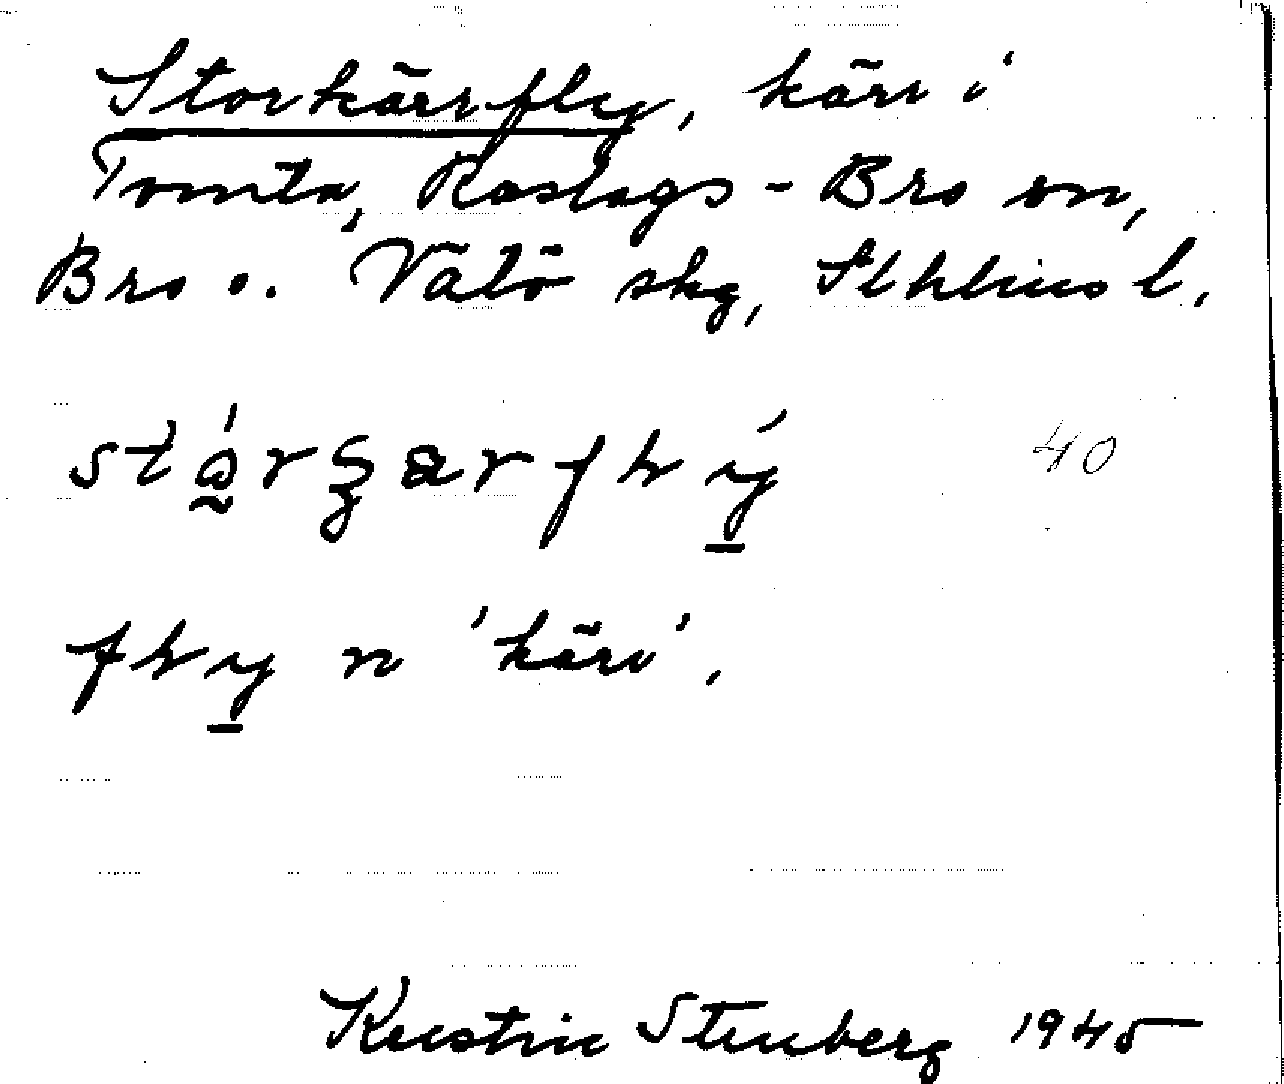 Storkärrfly, kärr i
Tomta, Roslags-Bro sn,
Bro o. Vätö skg, Sthlms l.
40
n 'kärr'.
Kerstin Stenberg 1945